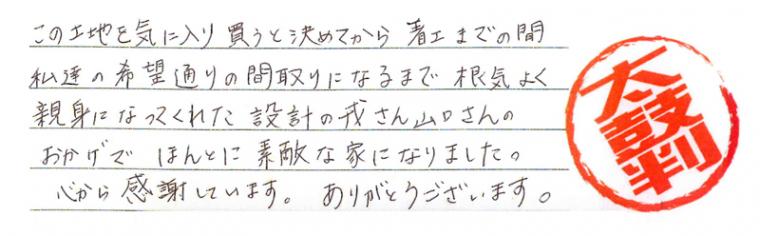 この土地を気に入り買うと決めてから 着工までの間
私達の希望通りの間取りになるまで 根気よく
親身になってくれた 設計の戎さん山口さんの
おかげで ほんとに 素敵な家になりました。
心から感謝しています。 ありがとうございます。
太鼓判